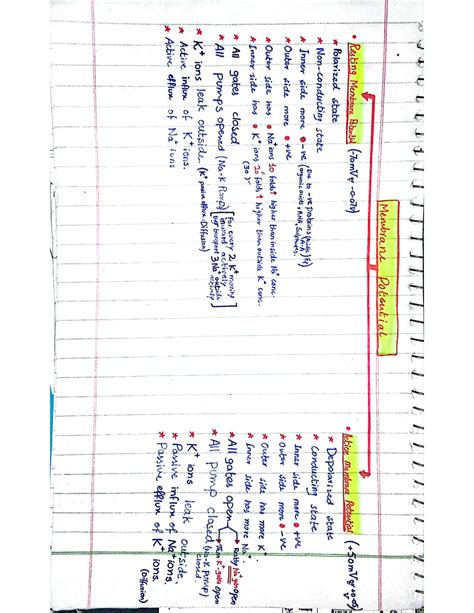 Membrane Potential
• Resting Membrane Potential (-70mV or -0.07V)
★ Polarized state
★ Non-conducting state
★ Inner side more • -ve (Due to -ve proteins
(organic acids, RNA,
★ Outer side more • +ve
★ Outer side has • Na⁺ ions 10 folds ↑ higher than inside Na⁺ conc.
★ Inner side has • K⁺ ions 20 folds ↑ higher than outside K⁺ conc.
(30)
★ All gates closed
★ All pumps opened (Na-K Pump) [For every 2 K⁺ moving
inward actively
transport 3 Na⁺ outside
★ K⁺ ions leak outside. (K⁺ Diffusion)
★ Active influx of K⁺ ions.
★ Active efflux of Na⁺ ions
• Action Membrane Potential (+50mV or +0.05V)
★ Depolarized state
★ Conducting state
★ Inner side more • +ve
★ Outer side more • -ve
★ Outer side has more K⁺
★ Inner side has more Na⁺
★ All gates open Na⁺ gate open
Then K⁺ gate open
★ All pump closed (Na-K Pump)
closed.
★ K⁺ ions leak outside.
★ Passive influx of Na⁺ ions.
★ Passive efflux of K⁺ ions.
(Diffusion)